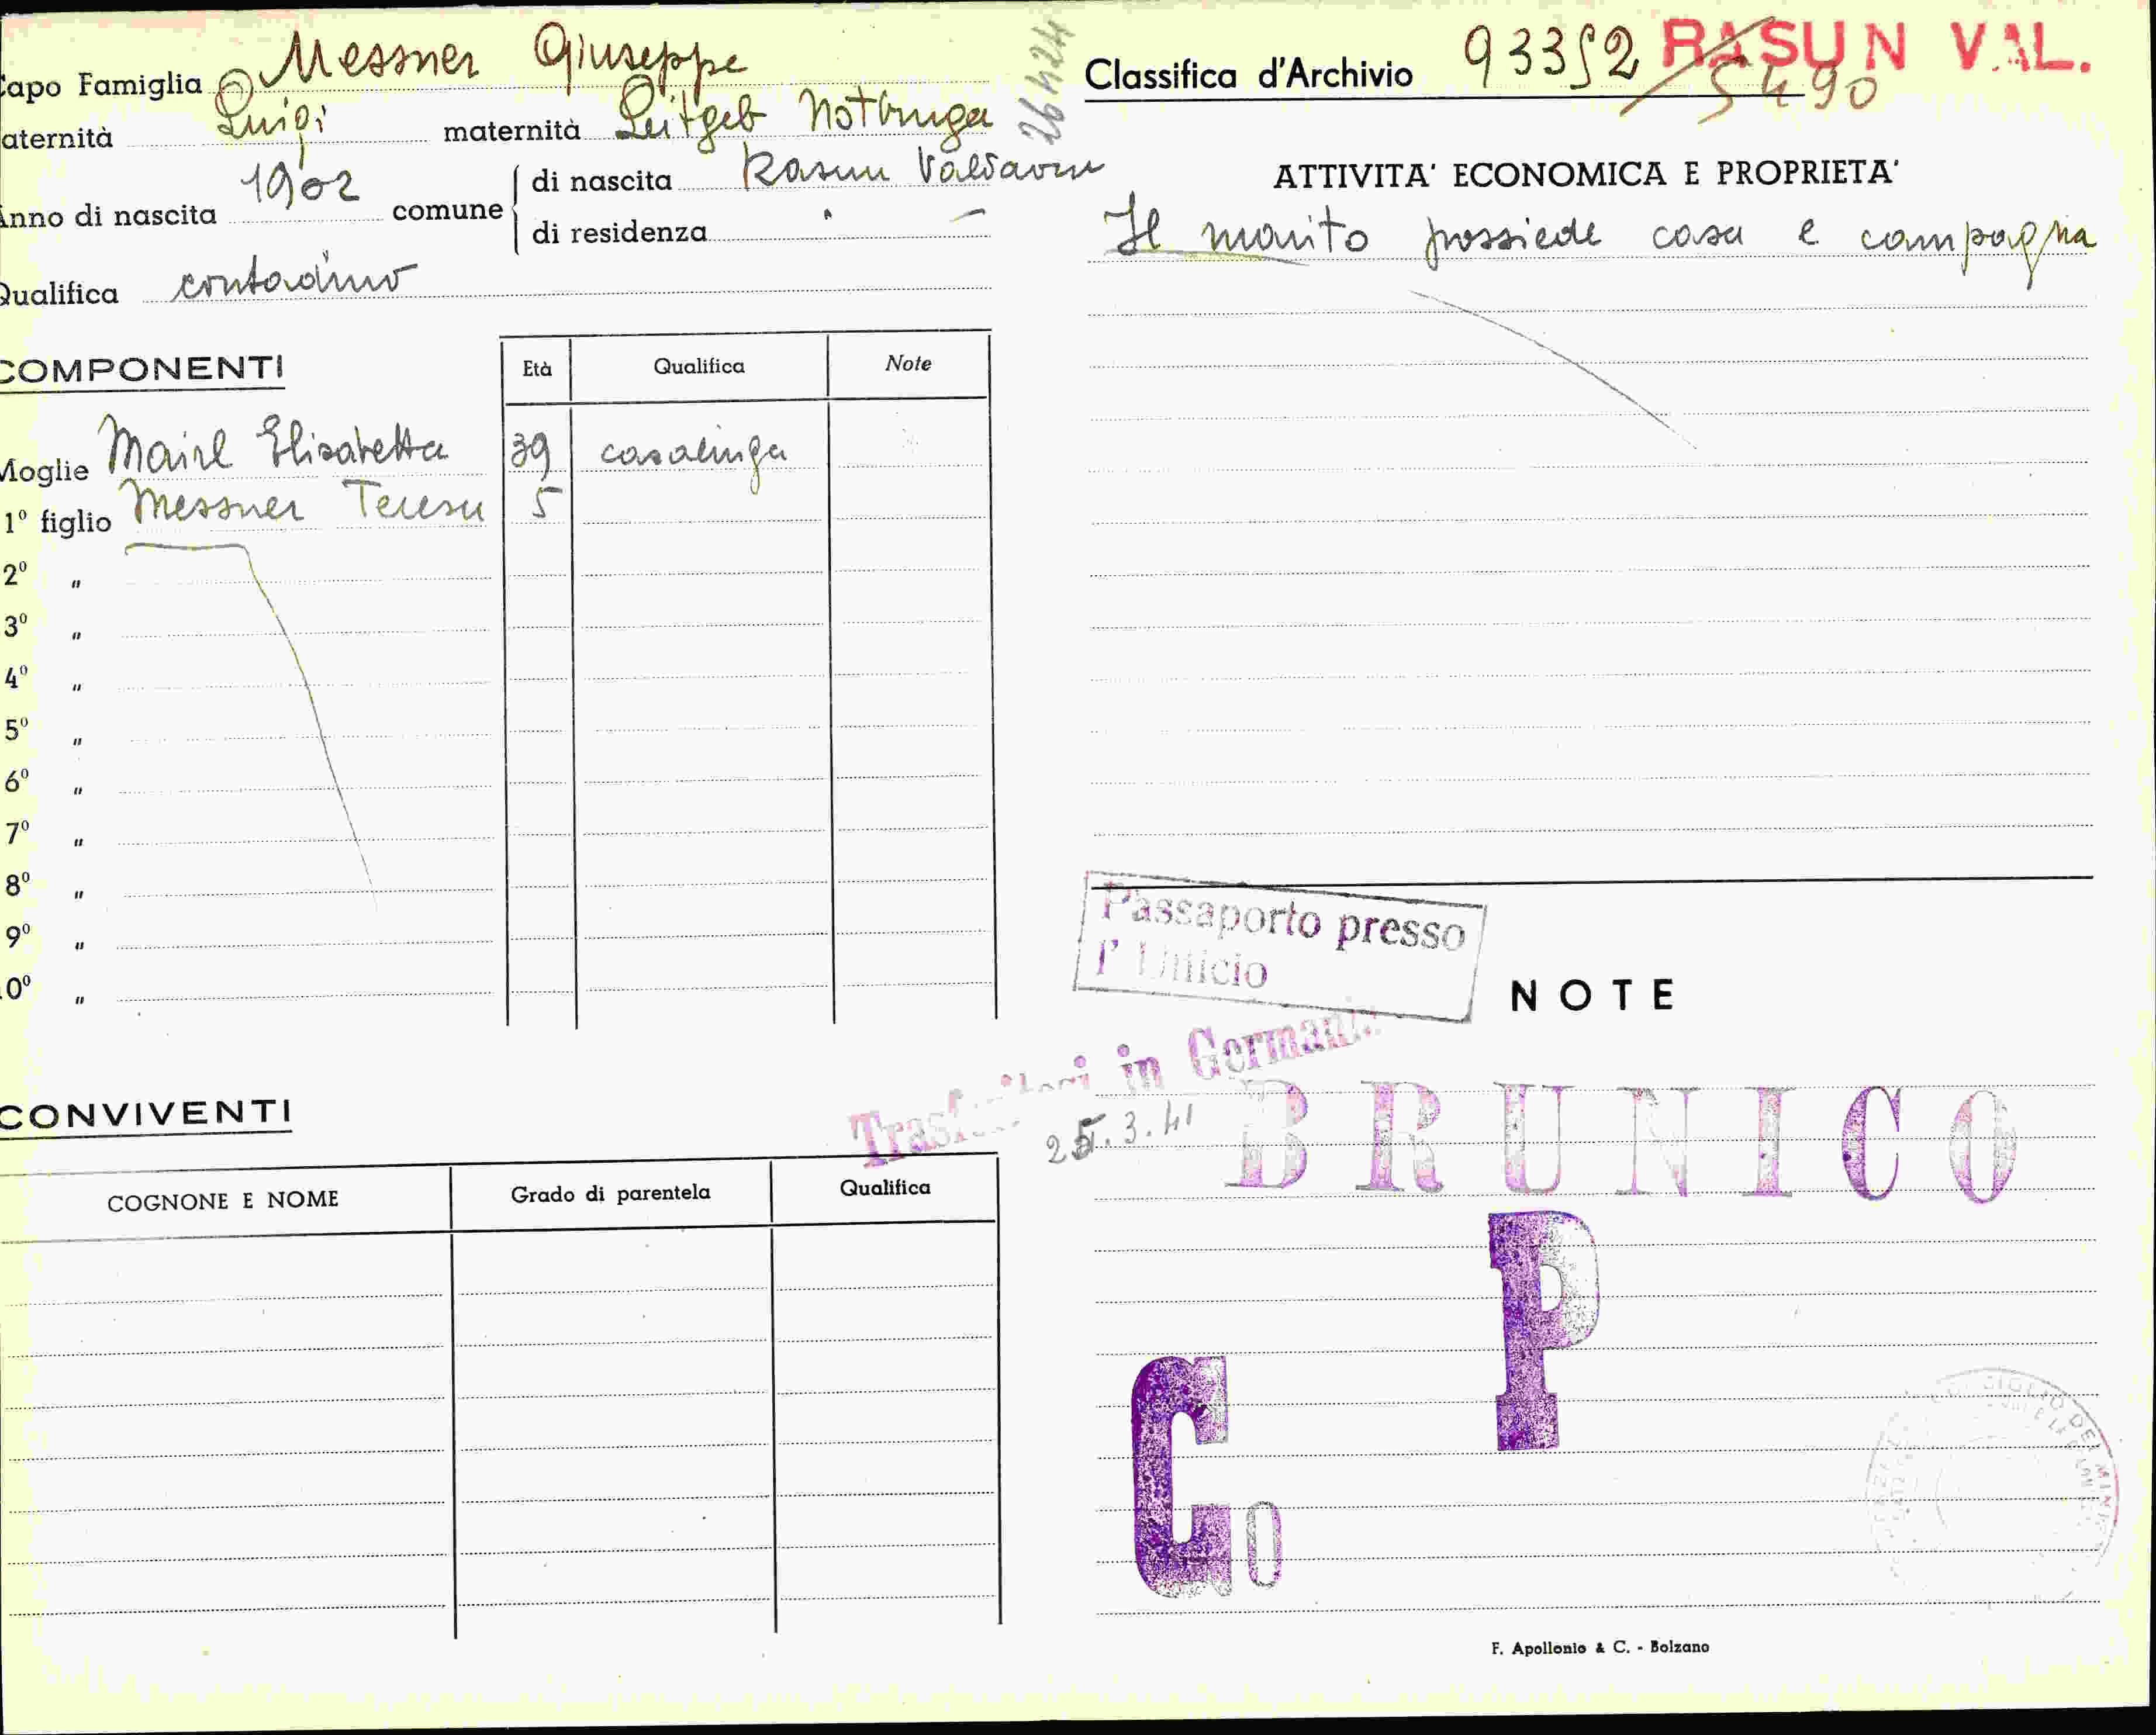 apo Famiglia Messner Giuseppe
aternità Luigi maternità Leitgeb Notburga
nno di nascita 1902 comune di nascita Rasun Valdaora
di residenza
Qualifica contadino
264424
COMPONENTI Età Qualifica Note
Moglie Mairl Elisabetta 39 casalinga
1° figlio Messner Teresa 5
2° "
3° "
4° "
5° "
6° "
7° "
8° "
9° "
0° "
CONVIVENTI
COGNONE E NOME Grado di parentela Qualifica
Classifica d'Archivio 93352 RASUN VAL.
5490
ATTIVITA' ECONOMICA E PROPRIETA'
Il marito possiede casa e campagna
Passaporto presso
l' Ufficio
NOTE
Trasferitosi in Germania
25.3.41
BRUNICO
P
G0
F. Apollonio & C. - Bolzano